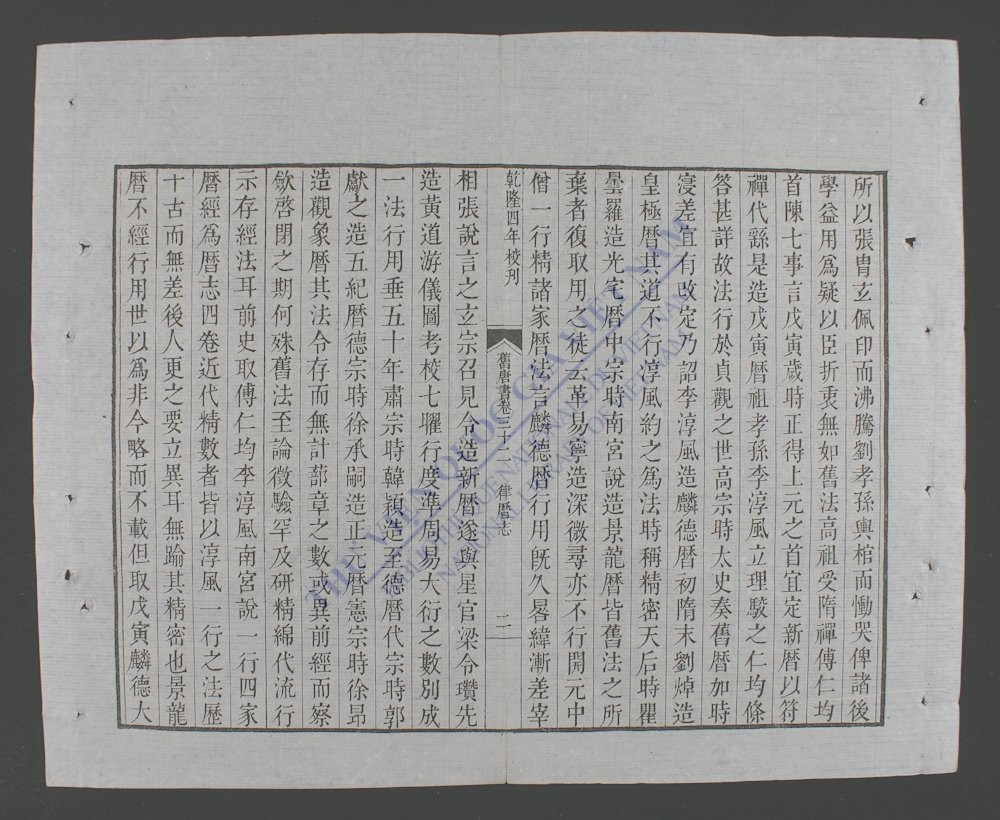 所以張胄玄佩印而沸騰劉孝孫輿棺而慟哭俾諸後
學益用爲疑以臣折衷無如舊法高祖受隋禪傅仁均
首陳七事言戊寅歲時正得上元之首宜定新曆以符
禪代繇是造戊寅曆祖孝孫李淳風立理駮之仁均條
答甚詳故法行於貞觀之世高宗時太史奏舊曆加時
寖差宜有改定乃詔李淳風造麟德曆初隋末劉焯造
皇極曆其道不行淳風約之爲法時稱精密天后時瞿
曇羅造光宅曆中宗時南宮說造景龍曆皆舊法之所
棄者復取用之徒云革易寧造深微尋亦不行開元中
僧一行精諸家曆法言麟德曆行用既久晷緯漸差宰
乾隆四年校刊
舊唐書卷三十二 律曆志 二
相張說言之玄宗召見令造新曆遂與星官梁令瓚先
造黃道游儀圖考校七曜行度準周易大衍之數別成
一法行用垂五十年肅宗時韓穎造至德曆代宗時郭
獻之造五紀曆德宗時徐承嗣造正元曆憲宗時徐昂
造觀象曆其法今存而無計蔀章之數或異前經而察
斂啓閉之期何殊舊法至論徵驗罕及研精綿代流行
示存經法耳前史取傅仁均李淳風南宮說一行四家
曆經爲曆志四卷近代精數者皆以淳風一行之法歷
十古而無差後人更之要立異耳無踰其精密也景龍
曆不經行用世以爲非今略而不載但取戊寅麟德大
THƯ VIỆN QUỐC GIA VIỆT NAM
BIBLIOTHEQUE NATIONALE DU VIETNAM
NATIONAL LIBRARY OF VIETNAM